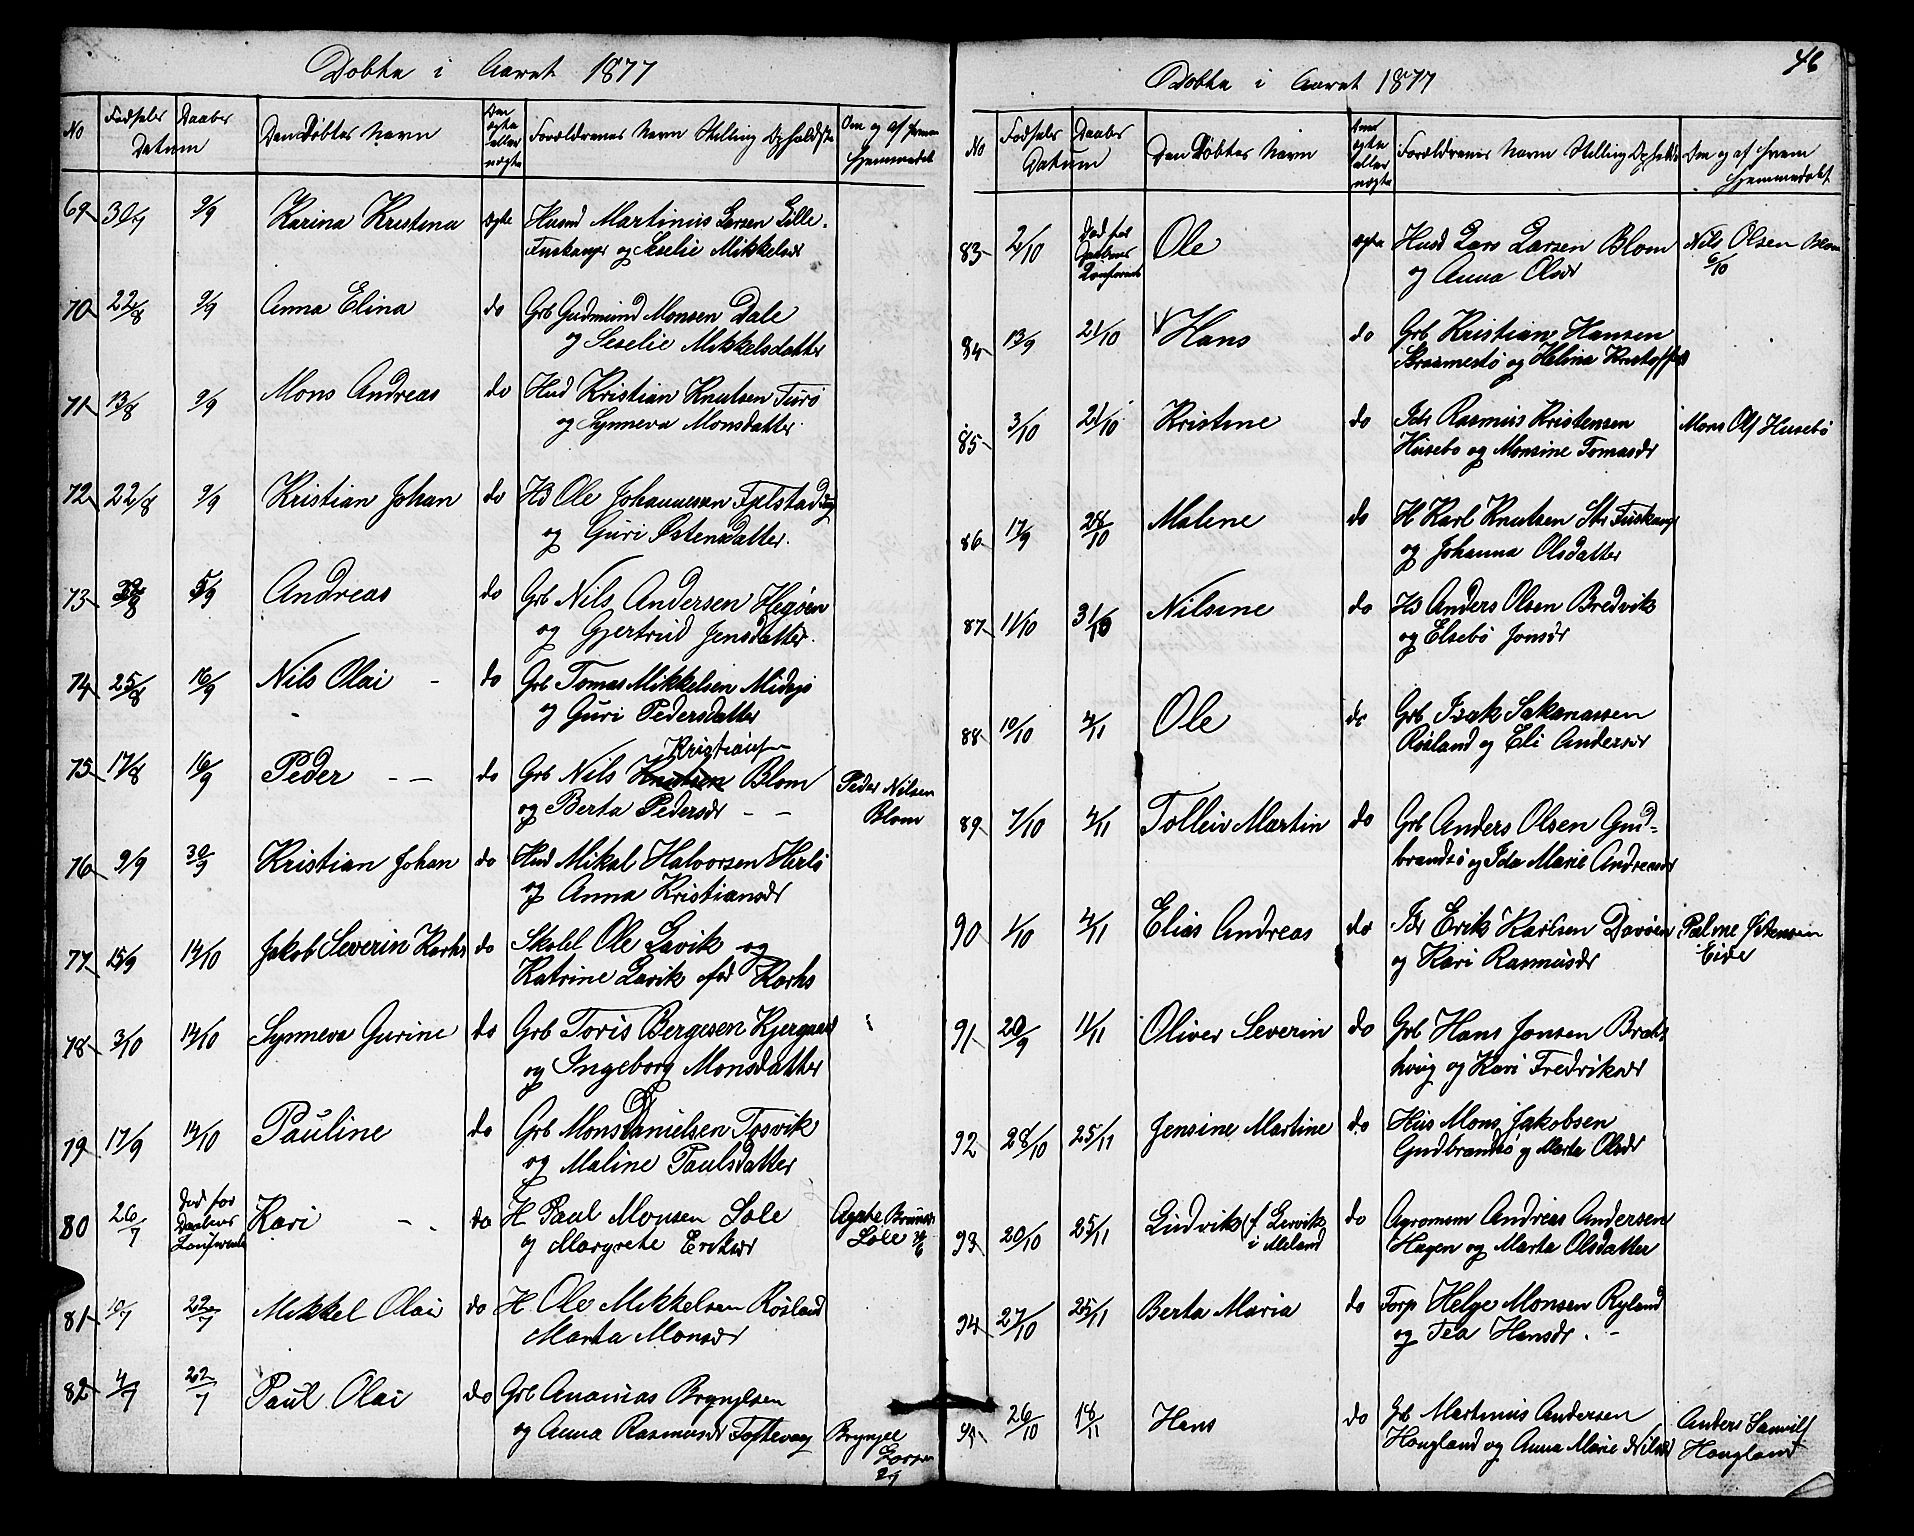 Døbte i Aaret 1877
No
Fødsels Daabs
Datum
Den Døbtes Navn
Den
ægte
eller
uægte
Forældrenes Navn Stilling Opholdst
Om og af hvem
hjemmedøbt
69 30/7 9/9 Karina Kristena ægte Husmd Martinus Larsen Lille
og Seselie Mikkelsdr
70 22/8 9/9 Anna Elina do Grb Gudmund Monsen Dale
og Seselie Mikkelsdatter
71 13/8 9/9 Mons Andreas do Hud Kristian Knutsen Turø
og Synneva Monsdatter
72 22/8 9/9 Kristian Johan do Hd Ole Johannesen Fjelstad
og Guri Østensdatter.
73 5/9 Andreas do Grb Nils Andersen Hegøen
og Gjertrud Jensdatter.
74 25/8 16/9 Nils Olai do Grb Tomas Mikkelsen Midsjø
og Guri Pedersdatter
Kristiansen
75 17/8 16/9 Peder do Grb Nils Knutsen Blom Peder Nilsen
og Berta Pedersdr Blom
76 9/9 30/9 Kristian Johan do Hud Mikal Halvorsen Herlø
og Anna Kristiansdr
77 15/9 14/10 Jakob Severin Korhs do Skoll Ole Lavik og
Katrine Lavik født Korhs
78 3/10 14/10 Synneva Gurine do Grb Toris Bergesen Kjergaard
og Ingeborg Monsdatter
79 17/9 14/10 Pauline do Grb Mons Danielsen Tosvik
og Maline Paulsdatter
80 26/7 Død før
Daabens
Kari do H Paul Monsen Sole Agate
og Margrete Eriksdr Sole
81 10/7 22/7 Mikkel Olai do H Ole Mikkelsen Røsland
Marta Monsdr
82 4/7 22/7 Paul Olai do Grb Ananias Brynjelsen
og Anna Rasmusdr Toftevaag Brynjel

46
Døbte i Aaret 1877
No
Fødsels Daabs
Datum
Den Døbtes Navn
ægte
eller
uægte
Forældrenes Navn Stilling Opholdst
Om og af hvem
hjemmedøbt
83 2/10 Død før
Daabens
Ole ægte Husd Lars Larsen Blom Nils Olsen Blom
og Anna Olsdr 6/10
84 13/9 21/10 Hans do Grb Kristian Hansen
og Helina
85 3/10 21/10 Kristine do Rasmus Kristensen Mons Ols Husebø
Husebø og Monsine Tomasdr
86 17/9 28/10 Malene do H Karl Knutsen
og Johanna Olsdatter
87 11/10 31/10 Nilsine do Hd Anders Olsen Bredvik
og Elsebø Jonsdr
88 10/10 4/11 Ole do Grb Isak Sakariassen
Røsland og Eli Andersdr
89 7/10 4/11 Tolleiv Martin do Grb Anders Olsen Gud-
brandsø og Ida Marie Andreasdr
90 1/10 4/11 Elias Andreas do Br Erik Karlsen Davøen Palne
og Kari Rasmusdr Eide
91 20/9 11/11 Oliver Severin do Grb Hans Jonsen Brat
hvig og Kari Fredriksdr
92 28/10 25/11 Jensine Martine do Hus Mons Jakobsen
Gudbrandsø og Marta Olsdr
93 20/10 25/11 Ludvik (f Lervik do Agronom Andreas Andersen
i Meland Hagen og Marta Olsdatter
94 27/10 25/11 Berta Maria do Torp Helge Monsen Ryland
og Tea Hansdr.
95 26/10 18/11 Hans do Grb Martinus Andersen Anders
Hougland og Anna Marie Nilsdr Hougland